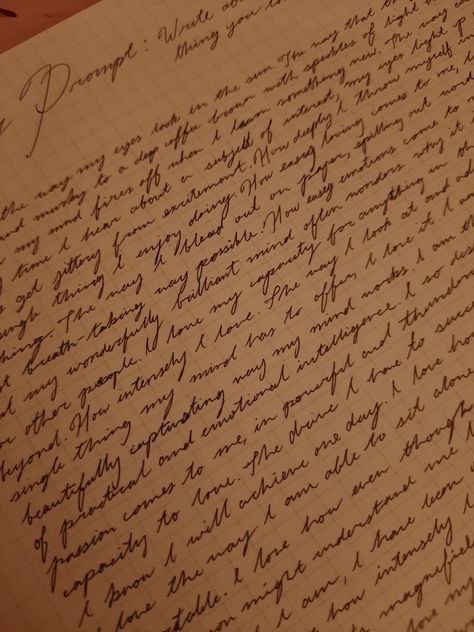 Prompt: Write
thing you
the way my eyes look in the sun. The way that
and murky to a deep coffee brown with speckles of light
my mind fires off when I learn something new. The way
time I hear about a subject of interest, my eyes light up
get jittery from excitement. How deeply I throw myself
single thing I enjoy doing. How easy loving comes to me,
The way I bleed out on paper, spilling out
breath-taking way possible. How easy emotions come to
my wonderfully brilliant mind often wonders why it
other people. I love my capacity for anything in
beyond. How intensely I love. The way I look at and
single thing my mind has to offer, I love it. I
beautifully captivating way my mind works. I am
of practical and emotional intelligence. I so
passion comes to me, in powerful and
capacity to love. The drive I have to
I know I will achieve one day. I love
love the way I am able to sit alone
I love how even though
might understand me
I am, I have been
how intensely I